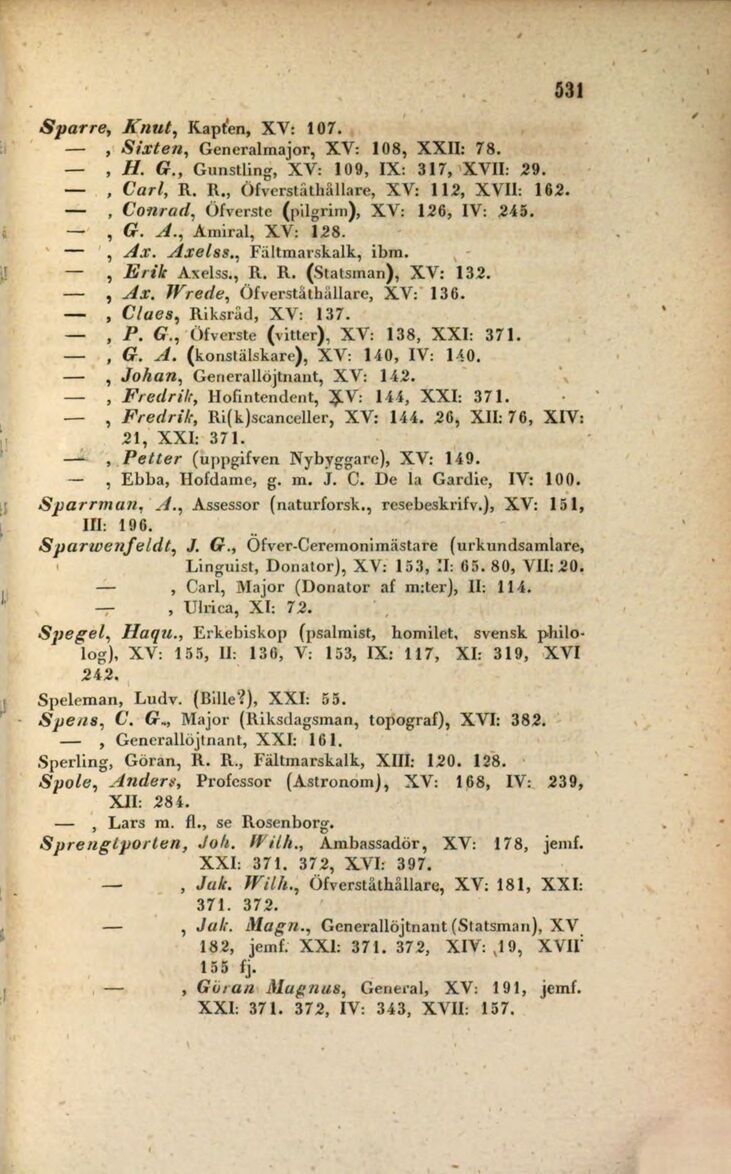 531
Sparre, Knut, Kapten, XV: 107.
— , Sixten, Generalmajor, XV: 108, XXII: 78.
— , H. G., Gunstling, XV: 109, IX: 317, XVII: 29.
— , Carl, R. R., Öfverståthållare, XV: 112, XVII: 162.
— , Conrad, Öfverste (pilgrim), XV: 126, IV: 245.
— , G. A., Amiral, XV: 128.
— , Ax. Axelss., Fältmarskalk, ibm.
— , Erik Axelss., R. R. (Statsman), XV: 132.
— , Ax. Wrede, Öfverståthållare, XV: 136.
— , Claes, Riksråd, XV: 137.
— , P. G., Öfverste (vitter), XV: 138, XXI: 371.
— , G. A. (konstälskare), XV: 140, IV: 140.
— , Johan, Generallöjtnant, XV: 142.
— , Fredrik, Hofintendent, XV: 144, XXI: 371.
— , Fredrik, Ri(k)scanceller, XV: 144. 26, XII: 76, XIV:
21, XXI: 371.
— , Petter (uppgifven Nybyggare), XV: 149.
— , Ebba, Hofdame, g. m. J. C. De la Gardie, IV: 100.
Sparrman, A., Assessor (naturforsk., resebeskrifv.), XV: 151,
III: 196.
Sparwenfeldt, J. G., Öfver-Ceremonimästare (urkundsamlare,
Linguist, Donator), XV: 153, II: 65. 80, VII: 20.
— , Carl, Major (Donator af m:ter), II: 114.
— , Ulrica, XI: 72.
Spegel, Haqu., Erkebiskop (psalmist, homilet, svensk philo-
log), XV: 155, II: 136, V: 153, IX: 117, XI: 319, XVI
242.
Speleman, Ludv. (Bille?), XXI: 55.
Spens, C. G., Major (Riksdagsman, topograf), XVI: 382.
— , Generallöjtnant, XXI: 161.
Sperling, Göran, R. R., Fältmarskalk, XIII: 120. 128.
Spole, Anders, Professor (Astronom), XV: 168, IV: 239,
XII: 284.
— , Lars m. fl., se Rosenborg.
Sprengtporten, Joh. Wilh., Ambassadör, XV: 178, jemf.
XXI: 371. 372, XVI: 397.
— , Jak. Wilh., Öfverståthållare, XV: 181, XXI:
371. 372.
— , Jak. Magn., Generallöjtnant (Statsman), XV
182, jemf. XXI: 371. 372, XIV: 19, XVII
155 fj.
— , Göran Magnus, General, XV: 191, jemf.
XXI: 371. 372, IV: 343, XVII: 157.